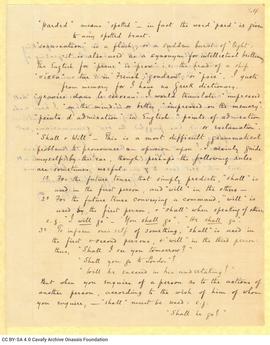 "Parded" means "spotted" – in fact the word "pard" is given
to any spotted beast.
is a flash, or a sudden burst of light
It is also used as a synonym for intellectual
the English for "proue" is "prow": is the head of a ship
in French "gendre", or "fore". I quote
from memory for I have no Greek dictionary.
on the mind is or better, impressed on the memory
points d'admiration in English "points of admiration
or exclamation"
Shall & Will – This is a most difficult grammatical
problem to pronounce an opinion upon. I mainly guide
myself by the ear, though perhaps the following rules
are sometimes useful
1º For the future tense that simply predicts, "shall" is
used in the first person, and "will" in the others –
2º For the future tense conveying a command, will is
used by the first & "shall" when speaking of others
e.g. "I will go – You shall go" "He shall go"
3º To inform one self of something, "shall" is used in
the first & second persons, & "will" in the third person
thus, "Shall I see you tomorrow?"
"Shall you go to London?"
Will he succeed in his undertaking?
But when you enquire of a person as to the actions of
another person, according to the wish of him of whom
you enquire, – "shall" must be used: e.g.
"Shall he go?"
CC BY-SA 4.0 Cavafy Archive Onassis Foundation